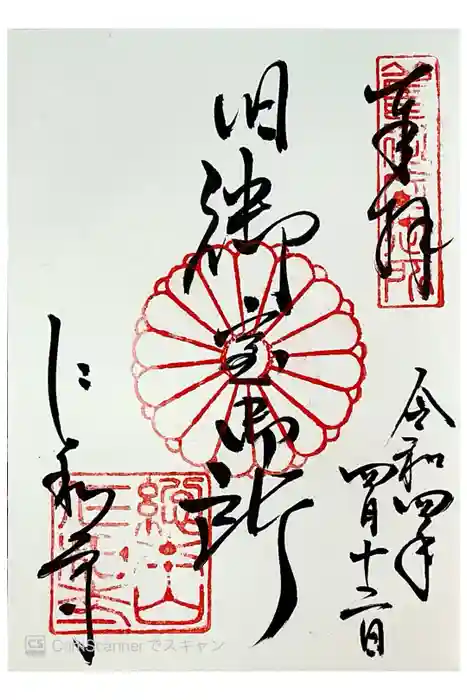 奉拝
令和四年
四月十二日
旧御室御所
仁和寺
總本山
仁和寺
CS CamScannerでスキャン